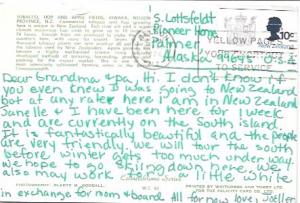 TOBACCO, HOP AND APPLE FIELDS, RIWAKA, NELSON
PROVINCE, N.Z.
S. Lottsfeldt
Pioneer Home
Palmer
Alaska 99645 U.S.A
YELLOW PAGES
10c
Dear Grandma & pa, Hi. I don't know if
you even knew I was going to New Zealand
but at any rate here I am in New Zealand
Janelle & I have been here for 1 week
and are currently on the south island.
It is fantastically beautiful and the people
are very friendly. We will tour the south
before winter gets too much under way.
we hope to go skiing down here. We
also may work for a little while
in exchange for room & board. All for now love,
PHOTOGRAPHY: GLADYS M. GOODALL.
PRINTED BY WHITCOMBE AND TOMBS LTD.